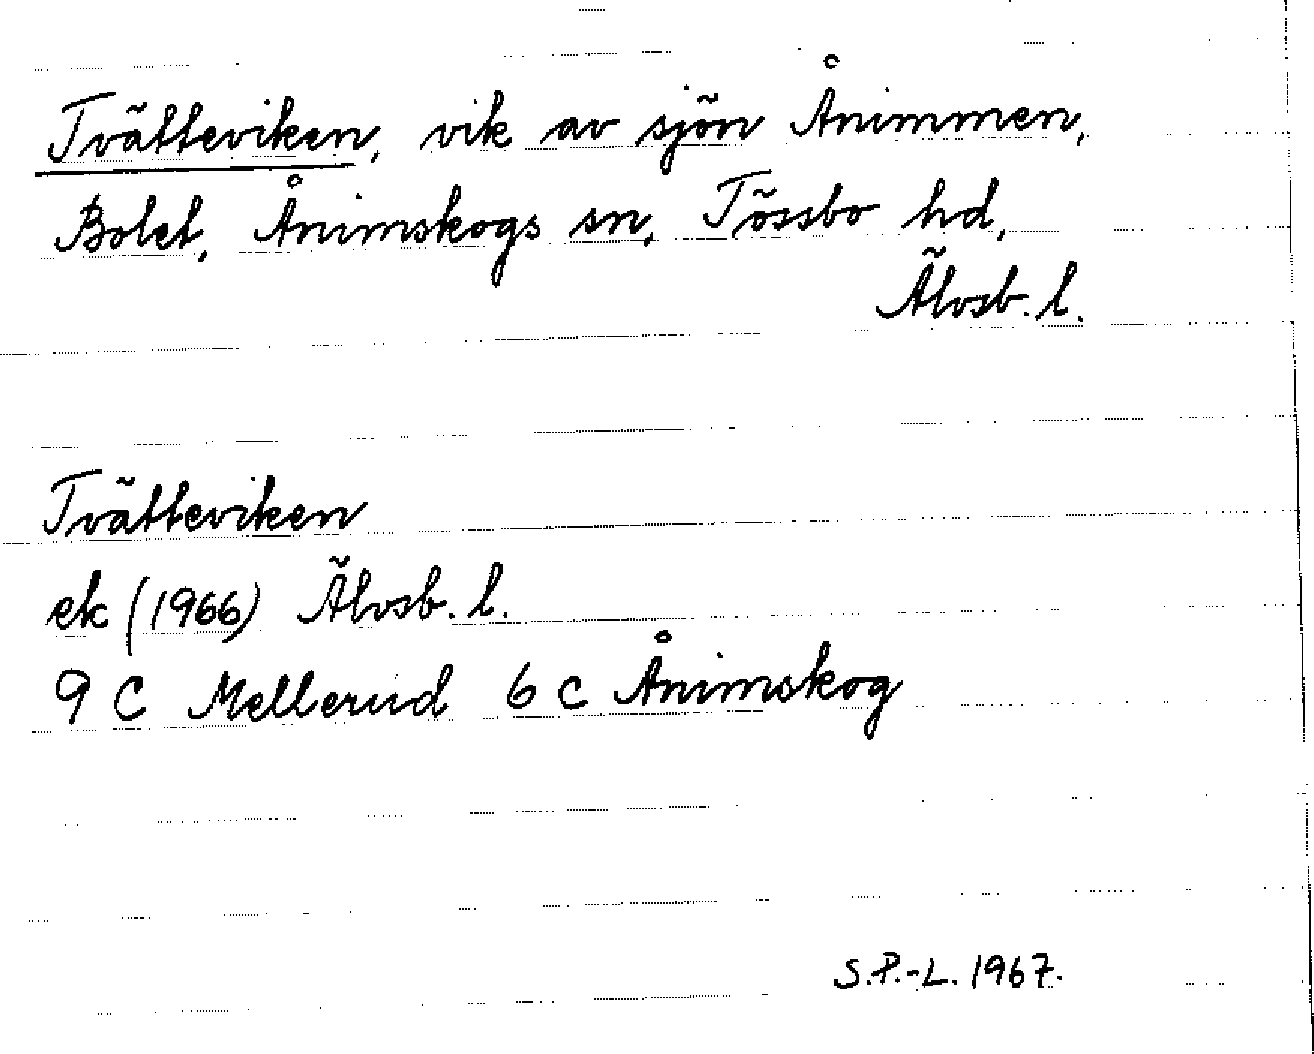 Tvätteviken, vik av sjön Ånimmen,
Bolet, Ånimskogs sn, Tössbo hd,
Älvsb. l.
Tvätteviken
ek (1966) Älvsb. l.
9 C Mellerud 6 c Ånimskog
S.P.-L. 1967.